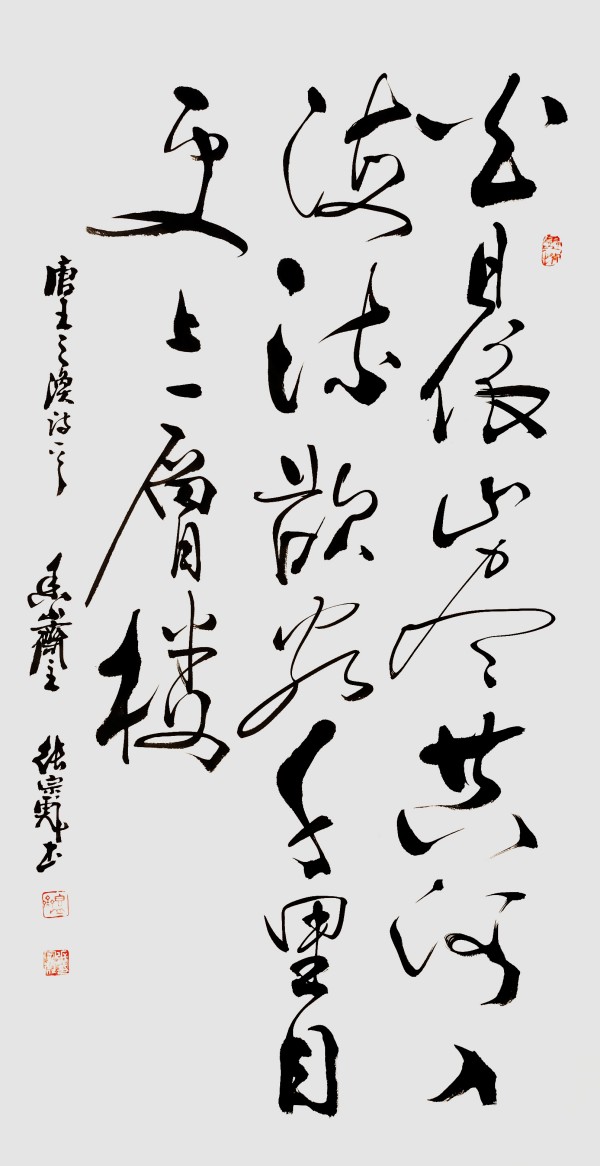 白日依山尽黄河入
海流欲穷千里目
更上一層楼
唐王之涣诗一首 齋主 张宗书